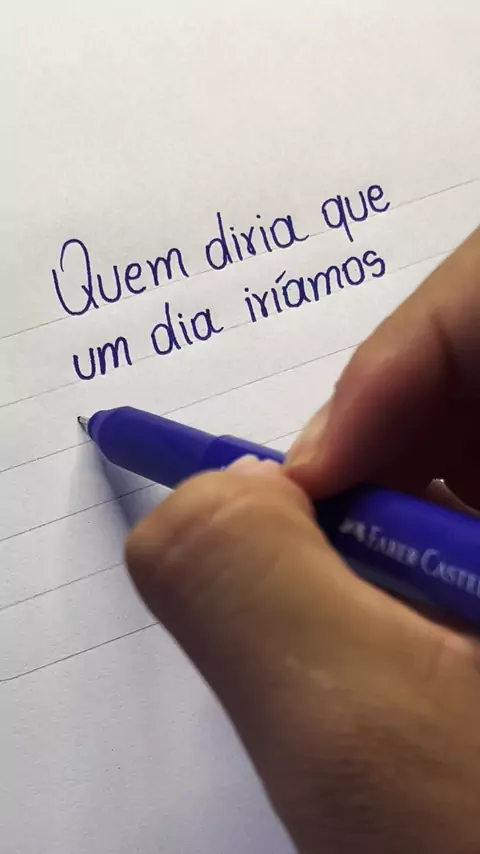 Quem diria que
um dia iríamos
FABER CASTEL